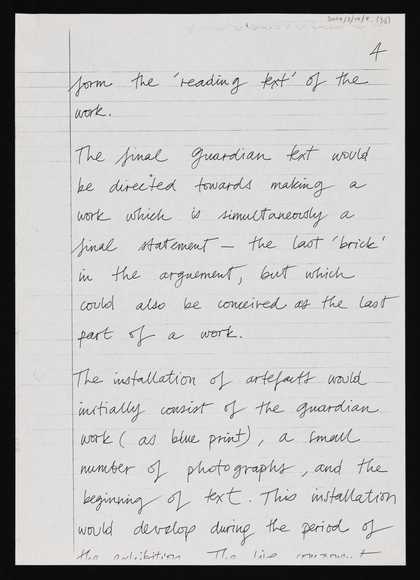 4
form the 'reading text' of the
work.
The final guardian text would
be directed towards making a
work which is simultaneously a
final statement — the last 'brick'
in the arguement, but which
could also be conceived as the last
part of a work.
The installation of artefacts would
initially consist of the guardian
work ( as blue print), a small
number of photographs, and the
beginning of text. This installation
would develop during the period of
the exhibition. The